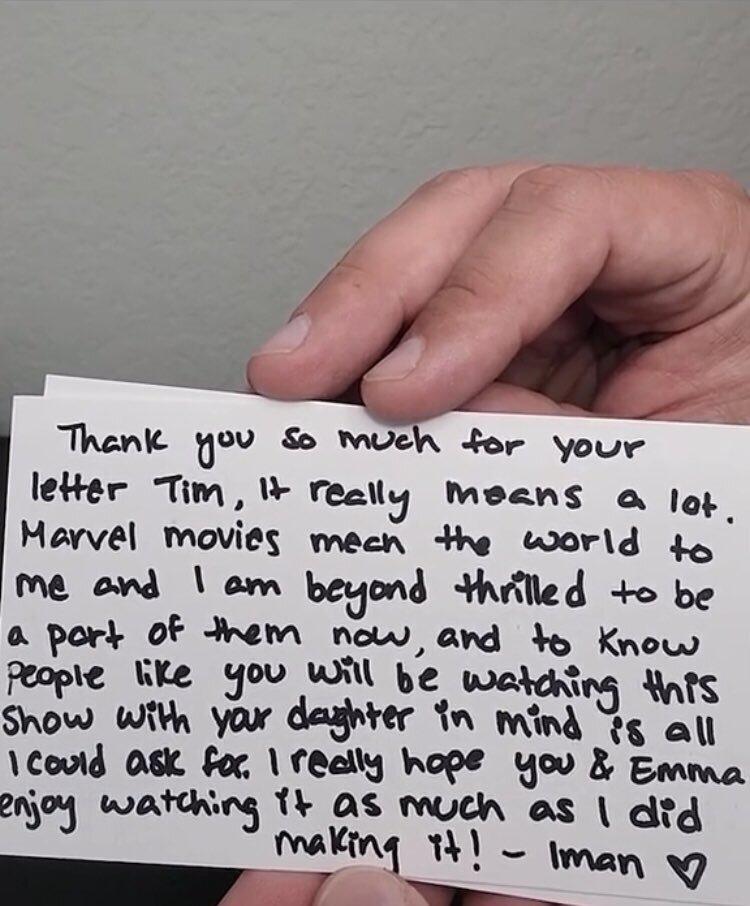 Thank you so much for your
letter Tim, It really means a lot.
Marvel movies mean the world to
me and I am beyond thrilled to be
a part of them now, and to know
people like you will be watching this
show with your daughter in mind is all
I could ask for. I really hope you & Emma
enjoy watching it as much as I did
making it! - Iman ♡